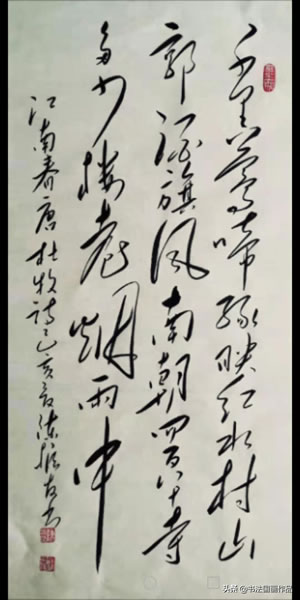 千里莺啼绿映红水村山
郭酒旗风南朝四百八十寺
多少楼臺烟雨中
江南春唐杜牧诗己亥
头条 @书法国画作品